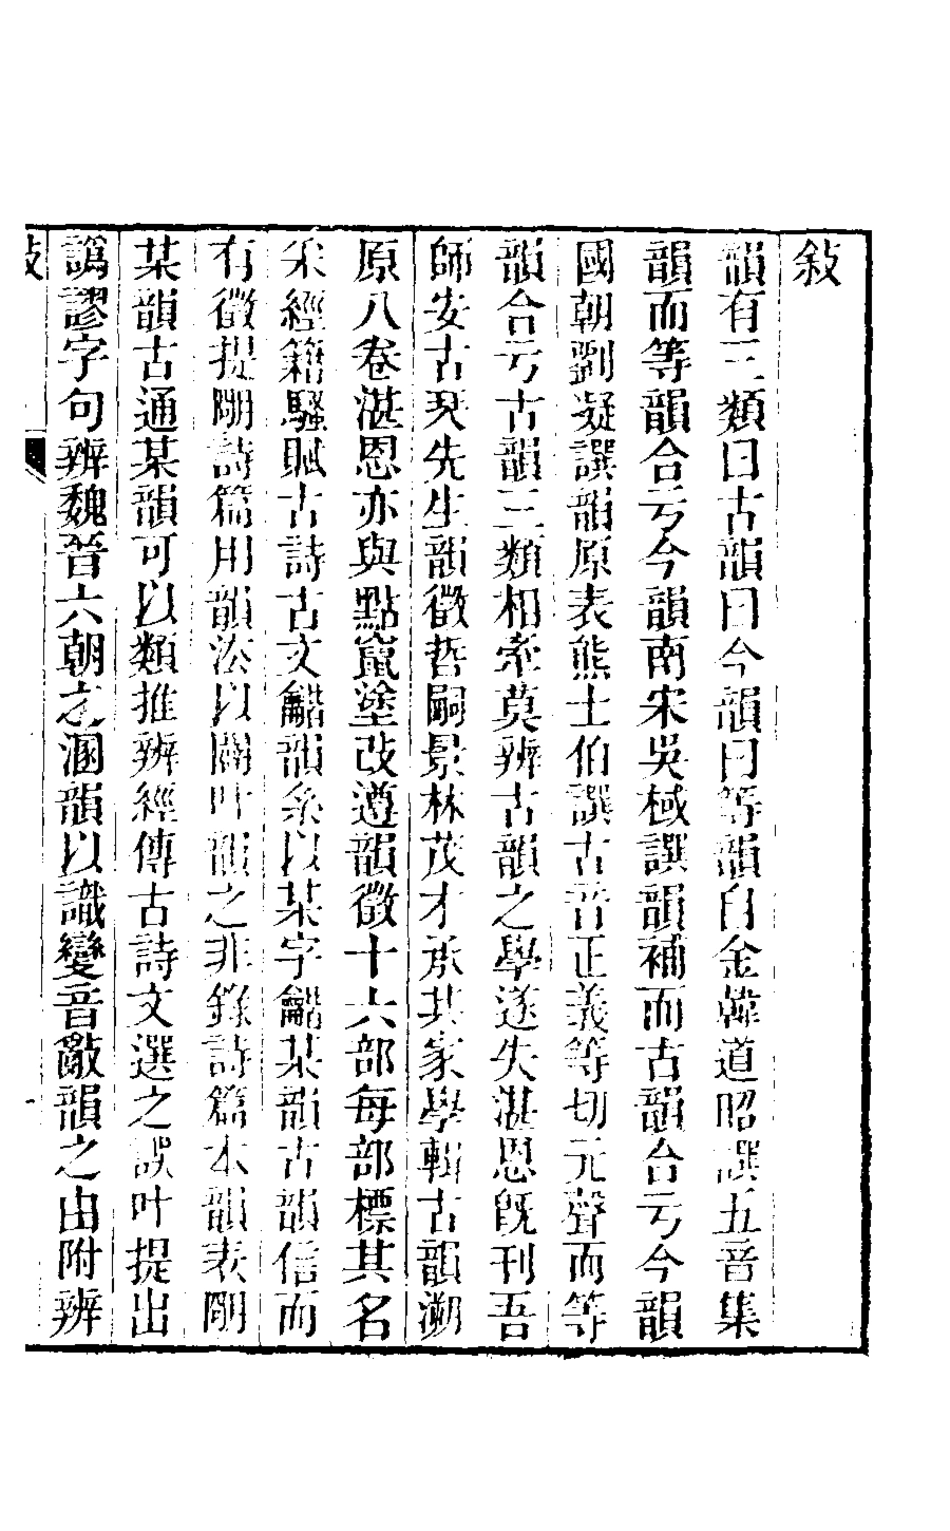 敍
韻有三類曰古韻曰今韻曰等韻自金韓道昭譔五音集
韻而等韻合亏今韻南宋吳棫譔韻補而古韻合亏今韻
國朝劉凝譔韻原表熊士伯譔古音正義等切元聲而等
韻合亏古韻三類相牽莫辨古韻之學遂失湛恩旣刊吾
師安古琴先生韻徵哲嗣景林茂才承其家學輯古韻溯
原八卷湛恩亦與點竄塗改遵韻徵十六部每部標其名
釆經籍騷賦古詩古文龤韻系以某字龤某韻古韻信而
有徵提剛詩篇用韻㳒以闢叶韻之非錄詩篇本韻表剛
某韻古通某韻可以類推辨經傳古詩文選之誤叶提出
譌謬字句辨魏晉六朝之溷韻以識變音敵韻之由附辨
敍
一